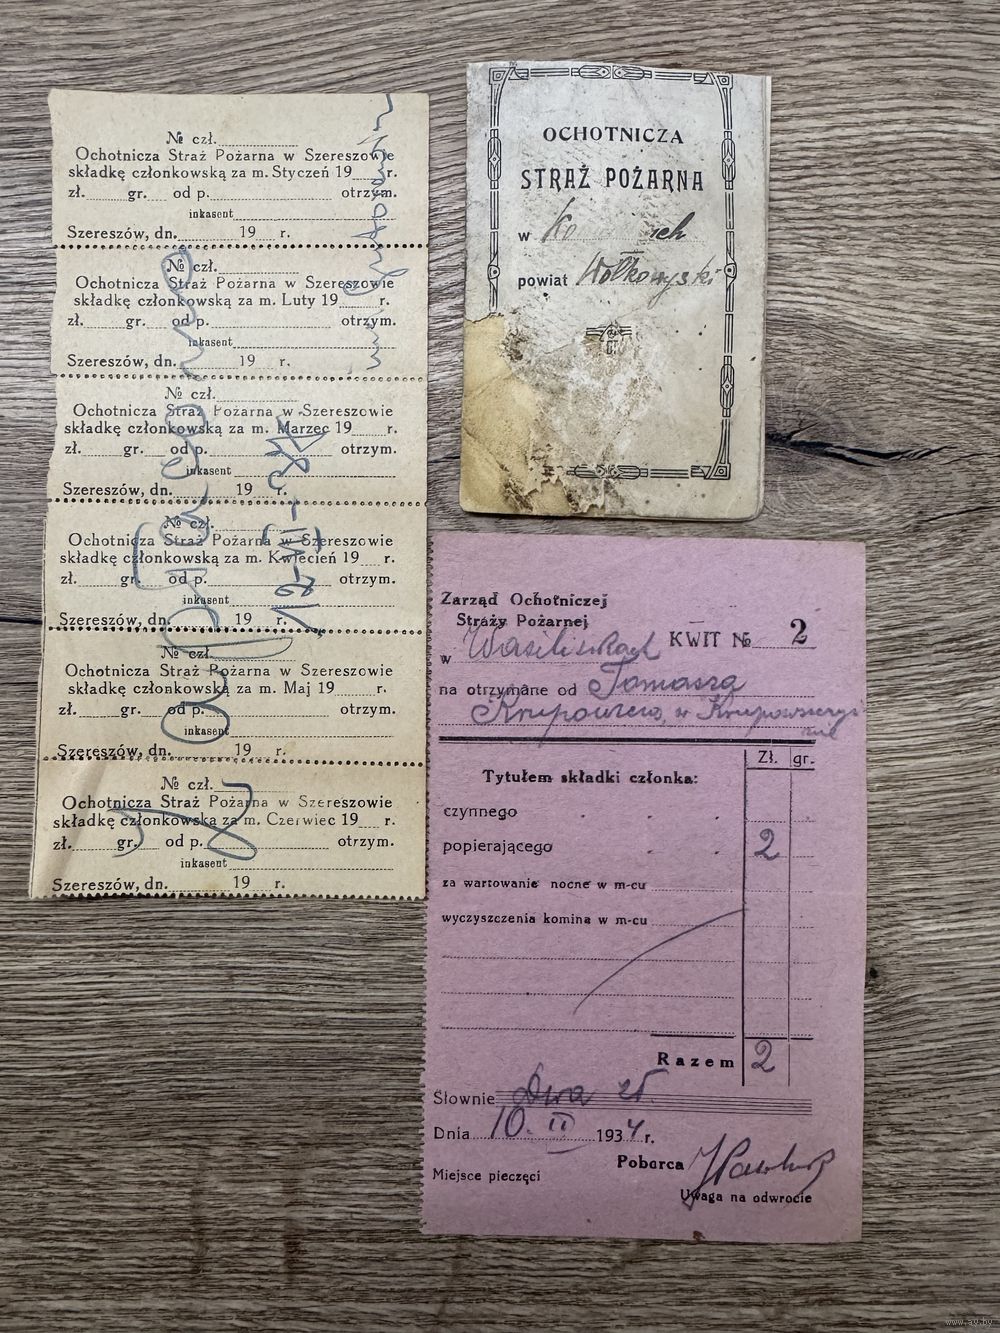 № czł.
Ochotnicza Straż Pożarna w Szereszowie
składkę członkowską za m. Styczeń 19 r.
zł. gr. od p. otrzym.
inkasent
Szereszów, dn. 19 r.
№ czł.
Ochotnicza Straż Pożarna w Szereszowie
składkę członkowską za m. Luty 19 r.
zł. gr. od p. otrzym.
inkasent
Szereszów, dn. 19 r.
№ czł.
Ochotnicza Straż Pożarna w Szereszowie
składkę członkowską za m. Marzec 19 r.
zł. gr. od p. otrzym.
inkasent
Szereszów, dn. 19 r.
№ czł.
Ochotnicza Straż Pożarna w Szereszowie
składkę członkowską za m. Kwiecień 19 r.
zł. gr. od p. otrzym.
inkasent
Szereszów, dn. 19 r.
№ czł.
Ochotnicza Straż Pożarna w Szereszowie
składkę członkowską za m. Maj 19 r.
zł. gr. od p. otrzym.
inkasent
Szereszów, dn. 19 r.
№ czł.
Ochotnicza Straż Pożarna w Szereszowie
składkę członkowską za m. Czerwiec 19 r.
zł. gr. od p. otrzym.
inkasent
Szereszów, dn. 19 r.
OCHOTNICZA
STRAŻ POŻARNA
w
powiat Wołkowyski
Zarząd Ochotniczej
Straży Pożarnej
w Wasiliszkach KWIT № 2
na otrzymane od Tomasza
Krupowicza, w
Zł. gr.
Tytułem składki członka:
czynnego
popierającego 2
za wartowanie nocne w m-cu
wyczyszczenia komina w m-cu
Razem 2
Słownie Dwa zł.
Dnia 10. II 1934 r.
Poborca
Miejsce pieczęci
Uwaga na odwrocie
www.ay.by